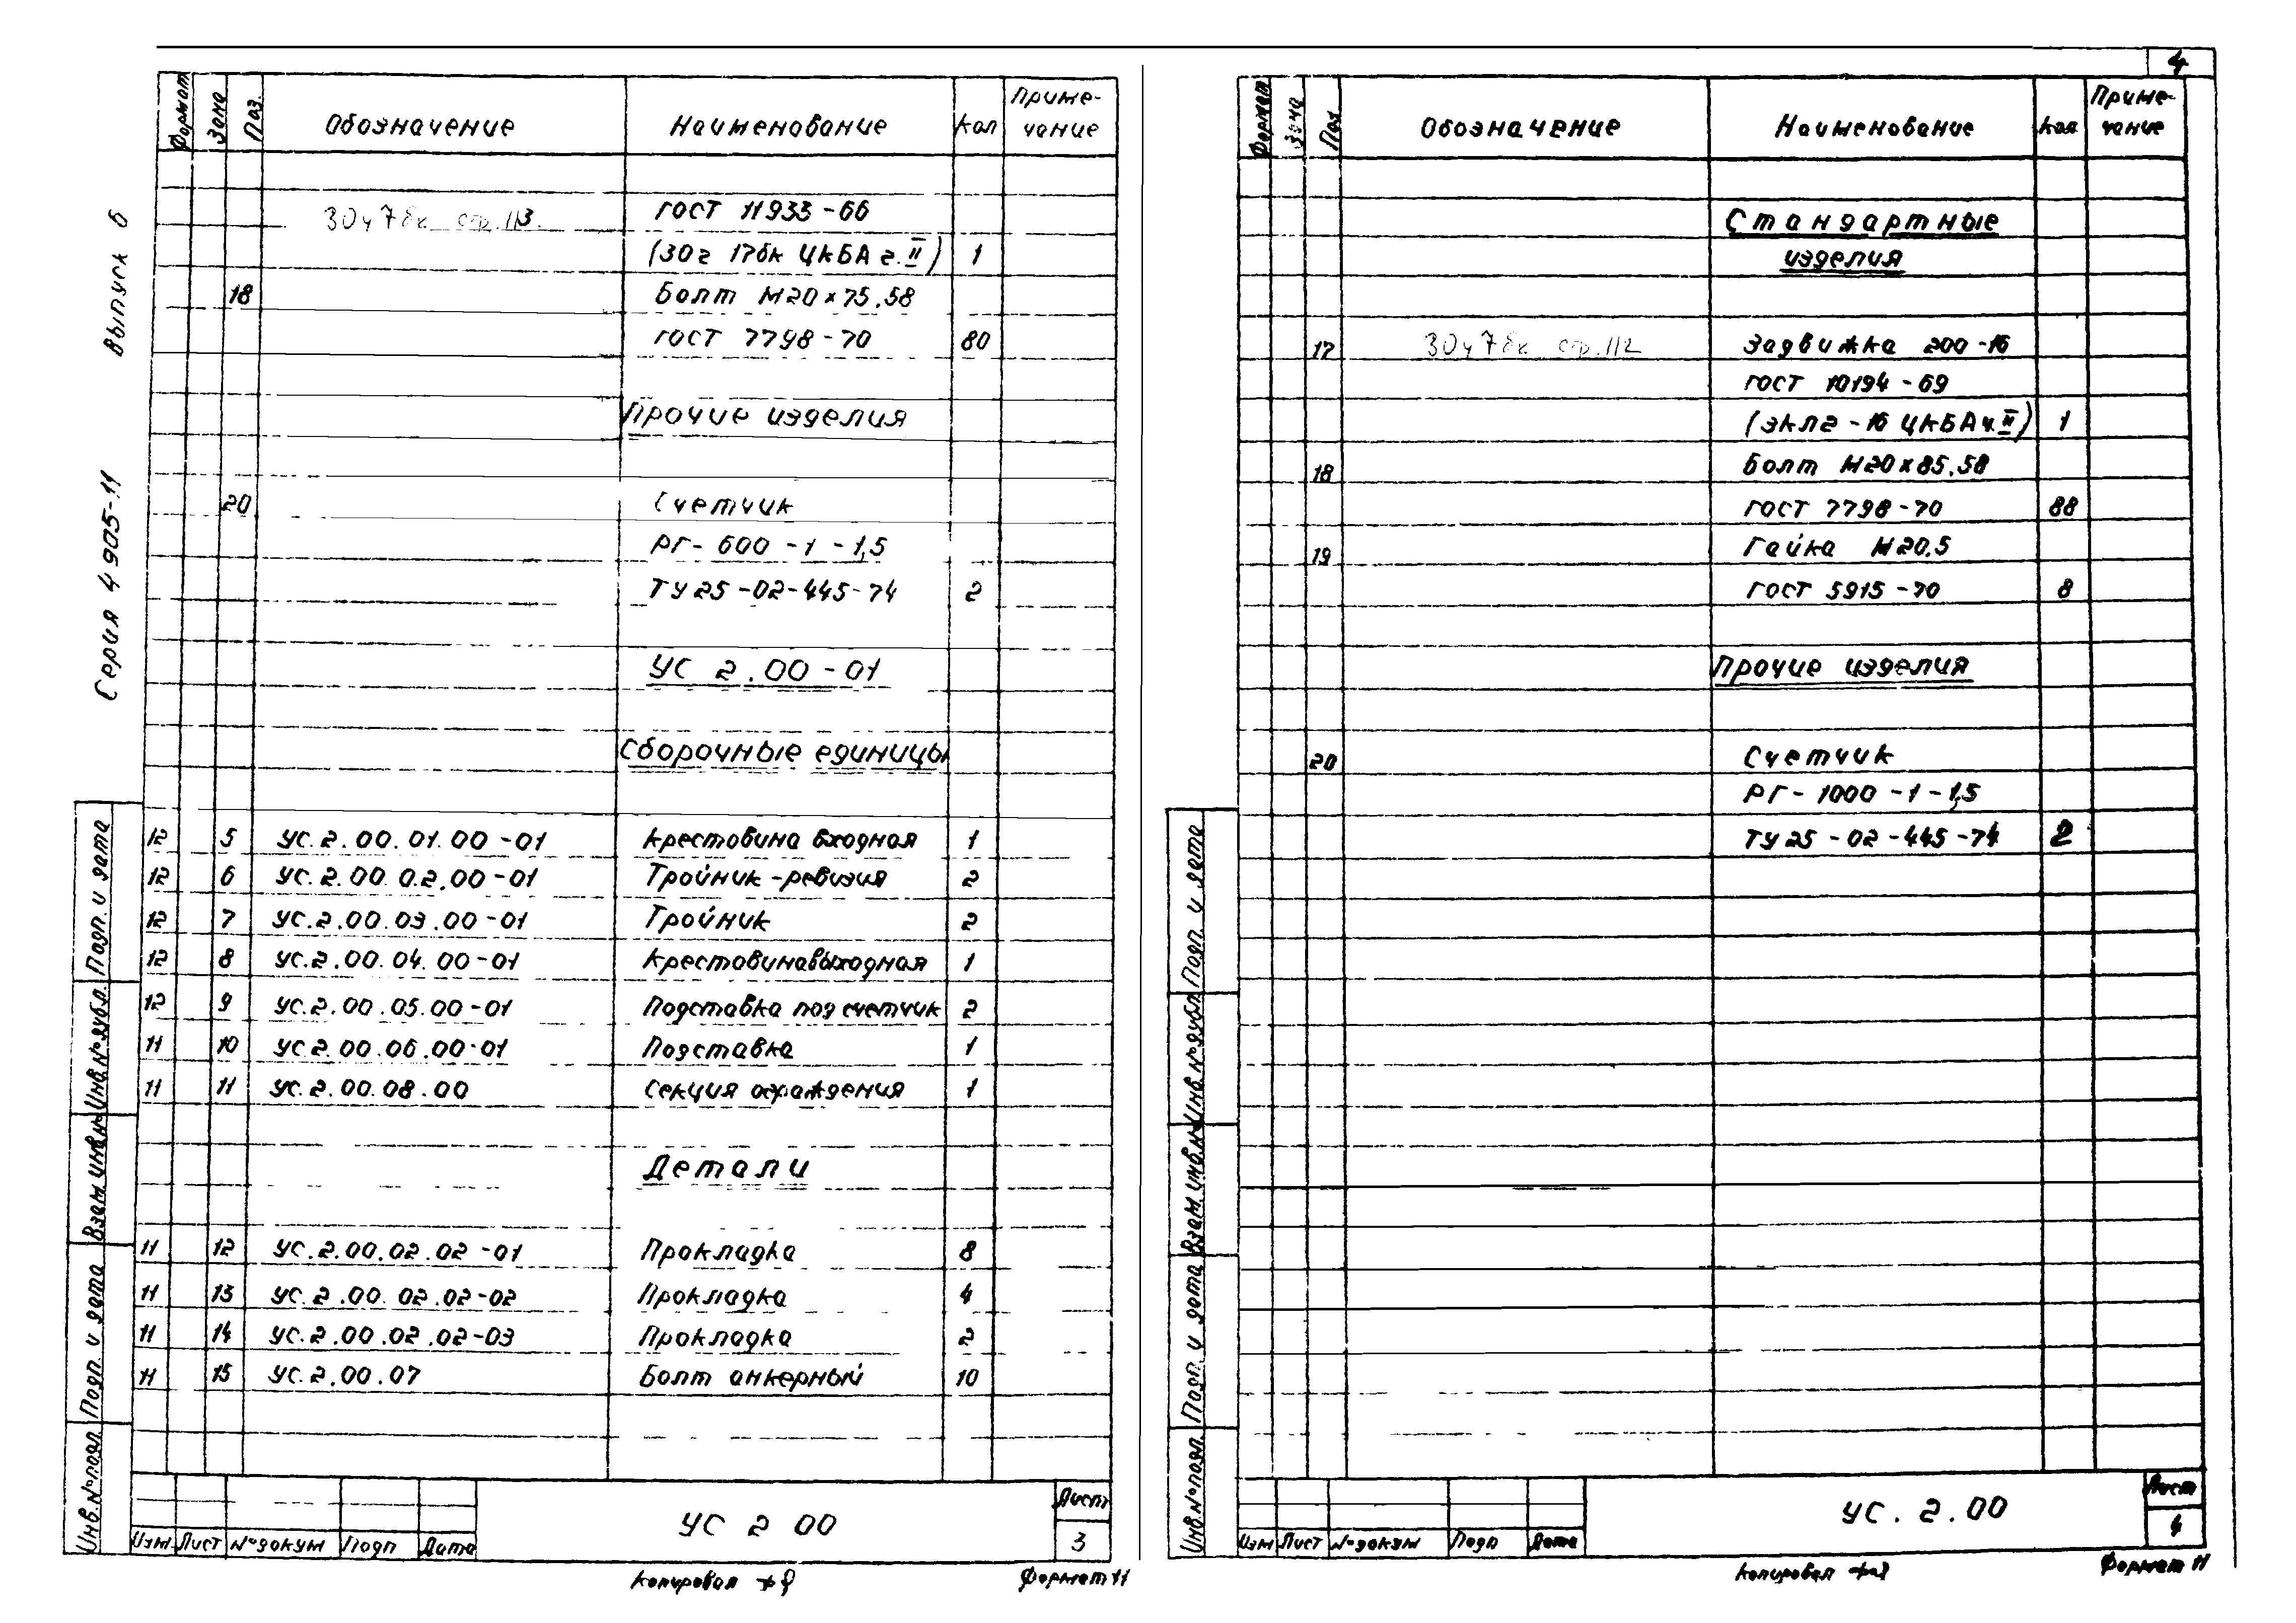 4
Серия 4 905-11 Выпуск 6
Формат Зона Поз. Обозначение Наименование Кол Приме-
чание
30ч7бк стр.113. ГОСТ 11933-66
(30г 17бк ЦКБА г.II) 1
18 Болт М20х75.58
ГОСТ 7798-70 80
Прочие изделия
20 Счетчик
РГ-600-1-1,5
ТУ25-02-445-74 2
УС 2.00-01
Сборочные единицы
12 5 УС.2.00.01.00-01 Крестовина входная 1
12 6 УС.2.00.02.00-01 Тройник-ревизия 2
12 7 УС.2.00.03.00-01 Тройник 2
12 8 УС.2.00.04.00-01 Крестовина выходная 1
12 9 УС.2.00.05.00-01 Подставка под счетчик 2
11 10 УС.2.00.06.00-01 Подставка 1
11 11 УС.2.00.08.00 Секция ограждения 1
Детали
11 12 УС.2.00.02.02-01 Прокладка 8
11 13 УС.2.00.02.02-02 Прокладка 4
11 14 УС.2.00.02.02-03 Прокладка 2
11 15 УС.2.00.07 Болт анкерный 10
Инв.№подл. Подп. и дата Взам.инв.№ Инв.№дубл. Подп. и дата
Изм. Лист №докум Подп Дата
УС 2 00
Лист
3
Копировал
Формат 11
Формат Зона Поз. Обозначение Наименование Кол Приме-
чание
Стандартные
изделия
17 30ч7бк стр.112 Задвижка 200-16
ГОСТ 10194-69
(ЗКЛ2-16 ЦКБА ч.II) 1
18 Болт М20х85.58
ГОСТ 7798-70 88
19 Гайка М20.5
ГОСТ 5915-70 8
Прочие изделия
20 Счетчик
РГ-1000-1-1,5
ТУ25-02-445-74 2
Инв.№подл. Подп. и дата Взам.инв.№ Инв.№дубл. Подп. и дата
Изм Лист №докум Подп Дата
УС.2.00
Лист
4
Копировал
Формат 11